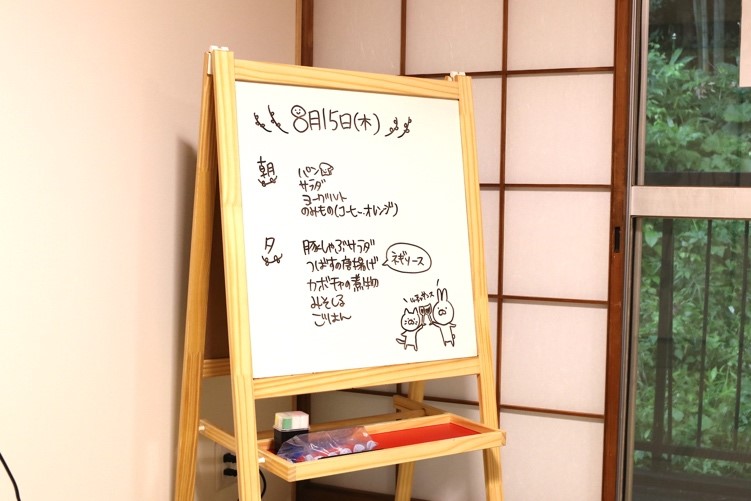 8月15日(木)
朝
パン
サラダ
ヨーグルト
のみもの(コーヒー、オレンジ)
夕
豚しゃぶサラダ
つばすの唐揚げ
ネギソース
カボチャの煮物
みそしる
ごはん